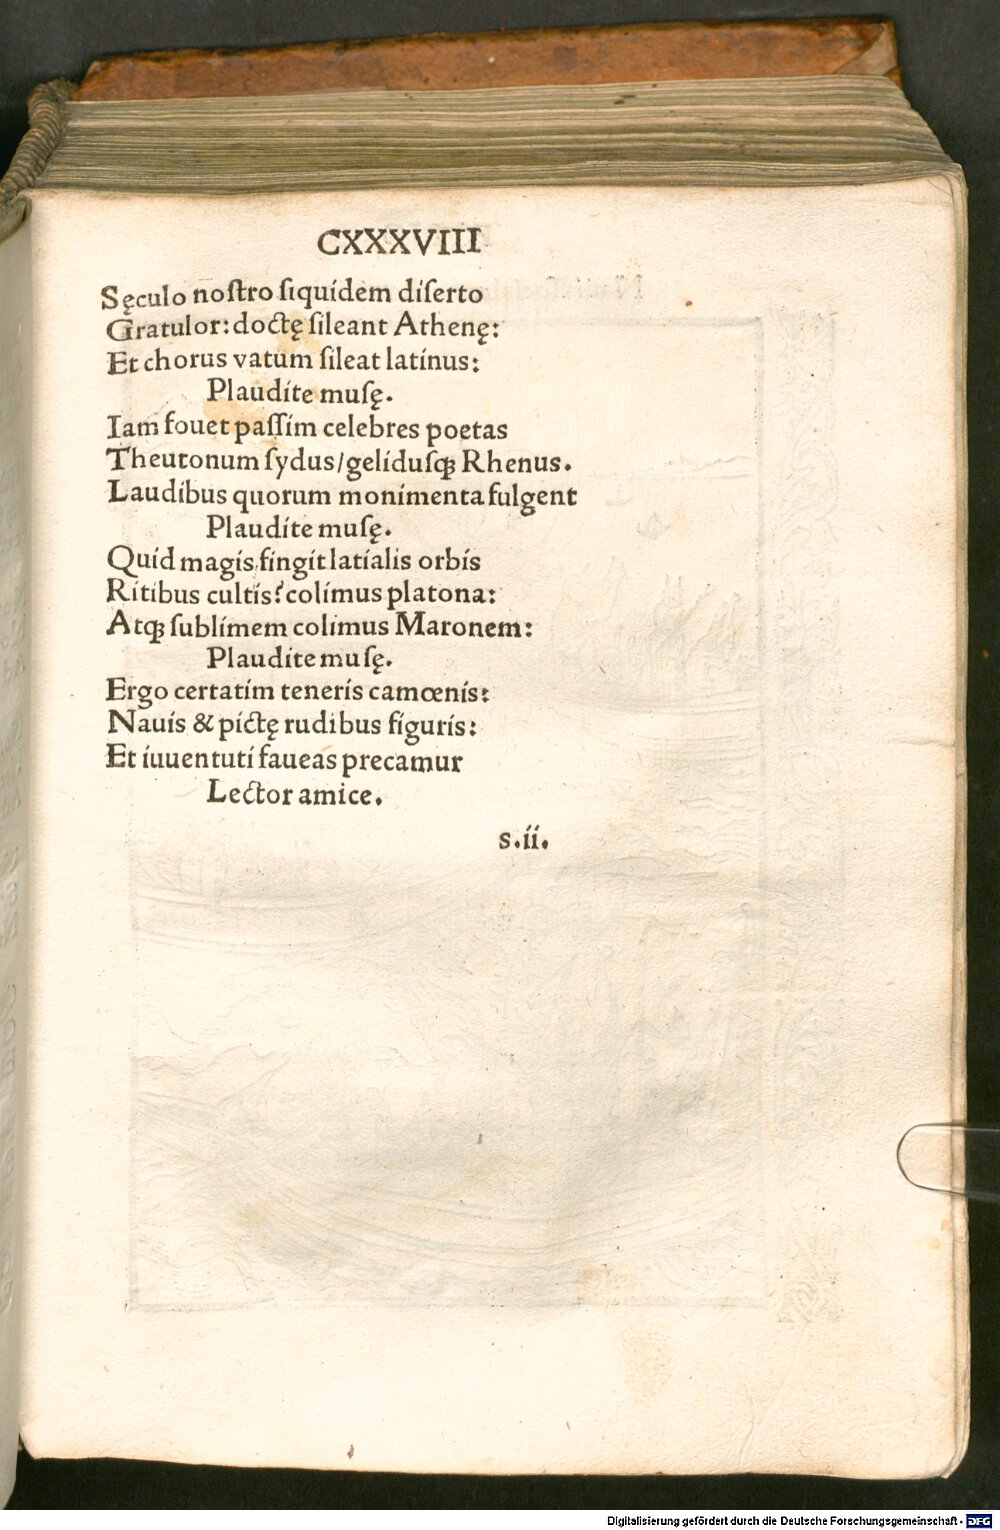 CXXXVIII
Sęculo noſtro ſiquidem diſerto
Gratulor: doctę ſileant Athenę:
Et chorus vatum ſileat latinus:
Plaudite muſę.
Iam fouet paſſim celebres poetas
Theutonum ſydus/geliduſqꝫ Rhenus.
Laudibus quorum monimenta fulgent
Plaudite muſę.
Quid magis fingit latialis orbis
Ritibus cultis? colimus platona:
Atqꝫ ſublimem colimus Maronem:
Plaudite muſę.
Ergo certatim teneris camœnis:
Nauis & pictę rudibus figuris:
Et iuuentuti faueas precamur
Lector amice.
s.ii.
Digitalisierung gefördert durch die Deutsche Forschungsgemeinschaft - DFG